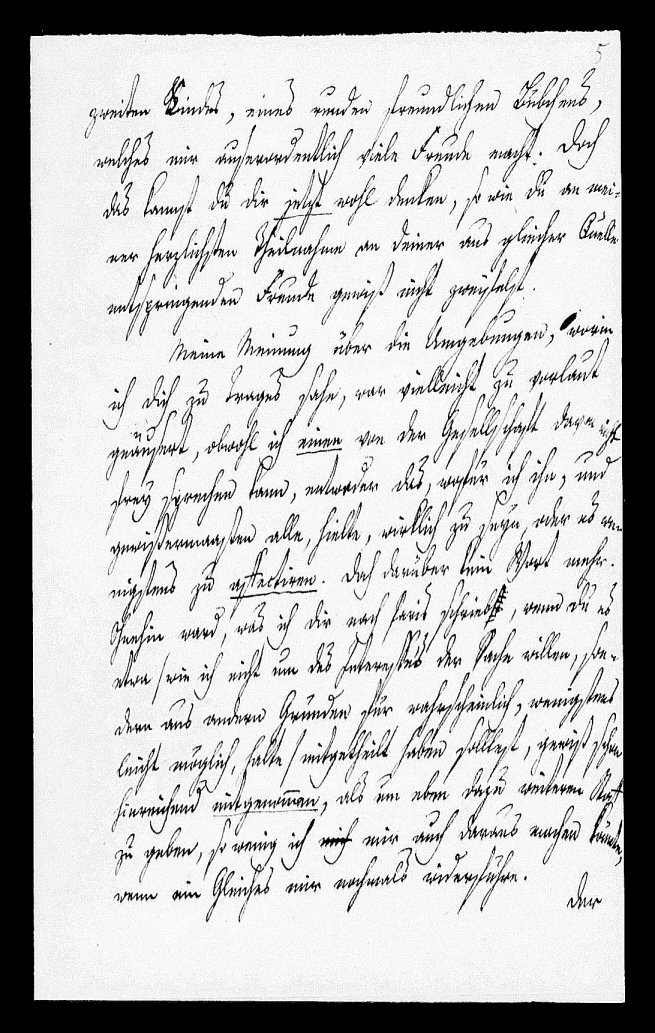 5
zweiten Kindes, eines runden freundlichen Bübchens,
welches mir ausserordentlich viele Freude macht. Doch
das kannst du dir jetzt wohl denken, so wie du an mei-
ner herzlichsten Theilnahme an deiner aus gleicher Quelle
entspringenden Freude gewiß nicht zweifelst.
Meine Meinung über die Umgebungen, worin
ich dich zu Trages sahe, war vielleicht zu vorlaut
geäussert, obwohl ich einen von der Gesellschaft davon
frey sprechen kann, entweder das, wofür ich ihn, und
gewissermaassen alle, hielte, wirklich zu seyn, oder es we-
nigstens zu affectiren. Doch darüber kein Wort mehr.
Ohnehin ward, was ich dir nach Paris schrieb, wenn du es
etwa / wie ich nicht um des Interesses der Sache willen, son-
dern aus andern Gründen für wahrscheinlich, wenigstens
leicht möglich, halte / mitgetheilt haben solltest, gewiß schon
hinreichend mitgenommen, als um eben dazu weiteren Stoff
zu geben, so wenig ich mich mir auch daraus machen könnte,
wenn ein Gleiches mir nochmals widerführe.
Der